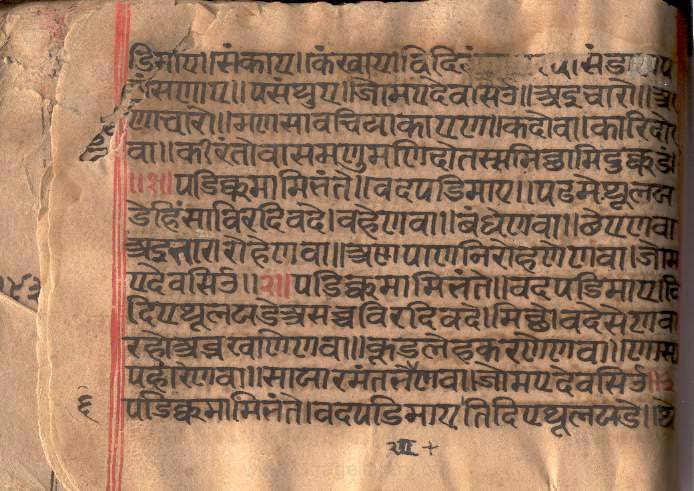 डिमाए॥संकाए॥कंखाए॥विदिगिं संडा प
संसणाए॥पसंथुए॥जोमएदेवसिउ॥अइचारो॥अ
णाचारो॥मणसावचियाकाएण॥कदोवा॥कारिदो
वा॥कीरंतोवासमणुमणिदोतस्समिच्छामिदुक्कडं
॥१॥पडिक्कमामिभंते॥वदपडिमाए॥पढमेथूलय
डेहिंसाविरदिवदे॥वहेणवा॥बंधेणवा॥छेएणवा
अइभारारोहेणवा॥अणपाणनिरोहणेणवा॥जोम
एदेवसिउ॥२॥पडिक्कमामिभंते॥वदपडिमाए॥दि
दिएथूलयडेअसच्चविरदिवदे॥मिच्छोवदेसेणवा
रहोअब्भखाणेणवा॥कूडलेहकरणेणवा॥णास
पहारेणवा॥सायारमंतभेएणवा॥जोमएदेवसिउ॥३
पडिक्कमामिभंते॥वदपडिमाए तिदिएथूलयडे॥थे
६